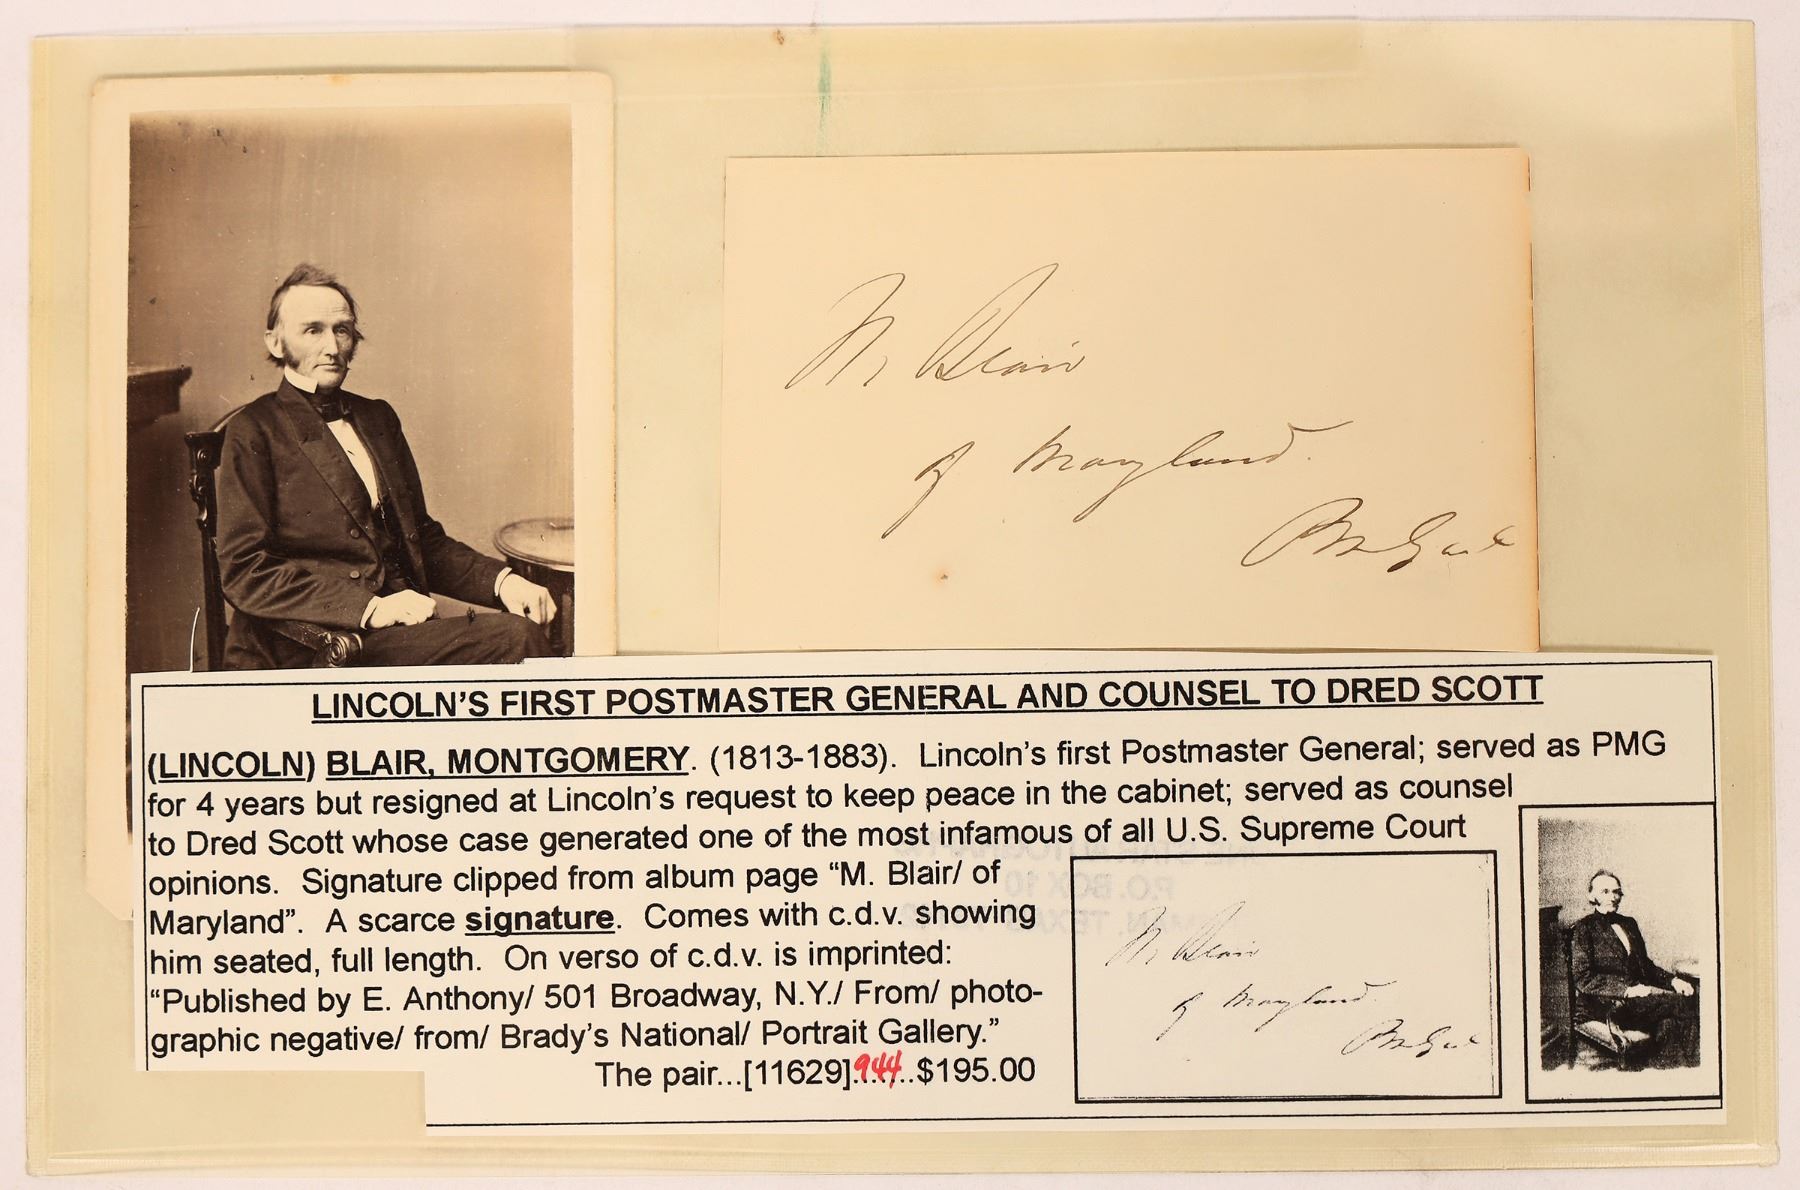 M Blair
of Maryland.
PMGenl
LINCOLN'S FIRST POSTMASTER GENERAL AND COUNSEL TO DRED SCOTT
(LINCOLN) BLAIR, MONTGOMERY. (1813-1883). Lincoln's first Postmaster General; served as PMG
for 4 years but resigned at Lincoln's request to keep peace in the cabinet; served as counsel
to Dred Scott whose case generated one of the most infamous of all U.S. Supreme Court
opinions. Signature clipped from album page "M. Blair/ of
Maryland". A scarce signature. Comes with c.d.v. showing
him seated, full length. On verso of c.d.v. is imprinted:
"Published by E. Anthony/ 501 Broadway, N.Y./ From/ photo-
graphic negative/ from/ Brady's National/ Portrait Gallery."
The pair...[11629]944...$195.00
P.O. BOX 10
M Blair
of Maryland.
PMGenl